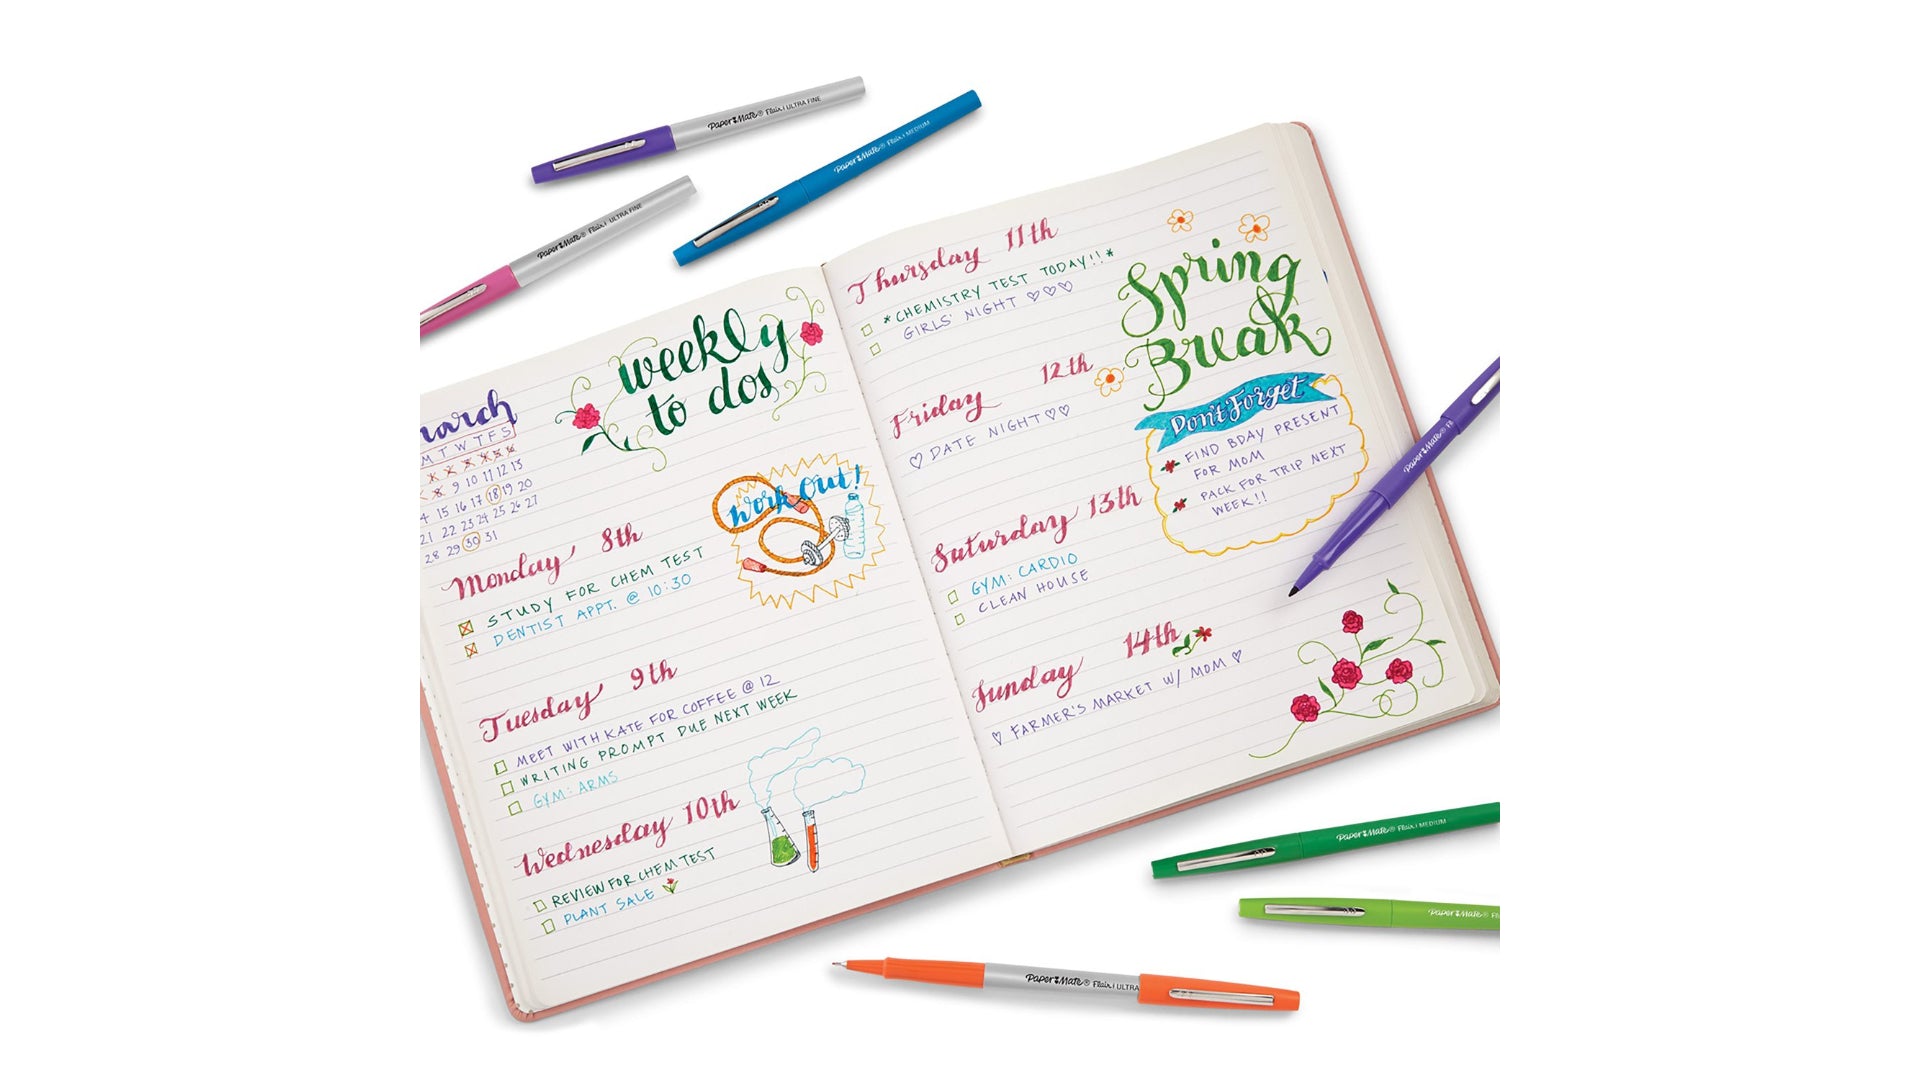 Paper Mate® Flair | ULTRA FINE
Paper Mate® Flair | MEDIUM
Paper Mate® Flair | ULTRA FINE
weekly
to dos
M T W T F S
8 9 10 11 12 13
15 16 17 18 19 20
21 22 23 24 25 26 27
28 29 30 31
Work Out!
Monday 8th
STUDY FOR CHEM TEST
DENTIST APPT. @ 10:30
Tuesday 9th
MEET WITH KATE FOR COFFEE @ 12
WRITING PROMPT DUE NEXT WEEK
GYM: ARMS
Wednesday 10th
REVIEW FOR CHEM TEST
PLANT SALE
Thursday 11th
*CHEMISTRY TEST TODAY!!*
GIRLS' NIGHT ♡♡♡
Friday 12th
♡ DATE NIGHT ♡♡
Saturday 13th
GYM: CARDIO
CLEAN HOUSE
Sunday 14th
♡ FARMER'S MARKET W/ MOM ♡
Spring
Break
Don't Forget
FIND BDAY PRESENT
FOR MOM
PACK FOR TRIP NEXT
WEEK!!
Paper Mate®
Paper Mate® Flair | MEDIUM
Paper Mate®
Paper Mate® Flair | ULTRA